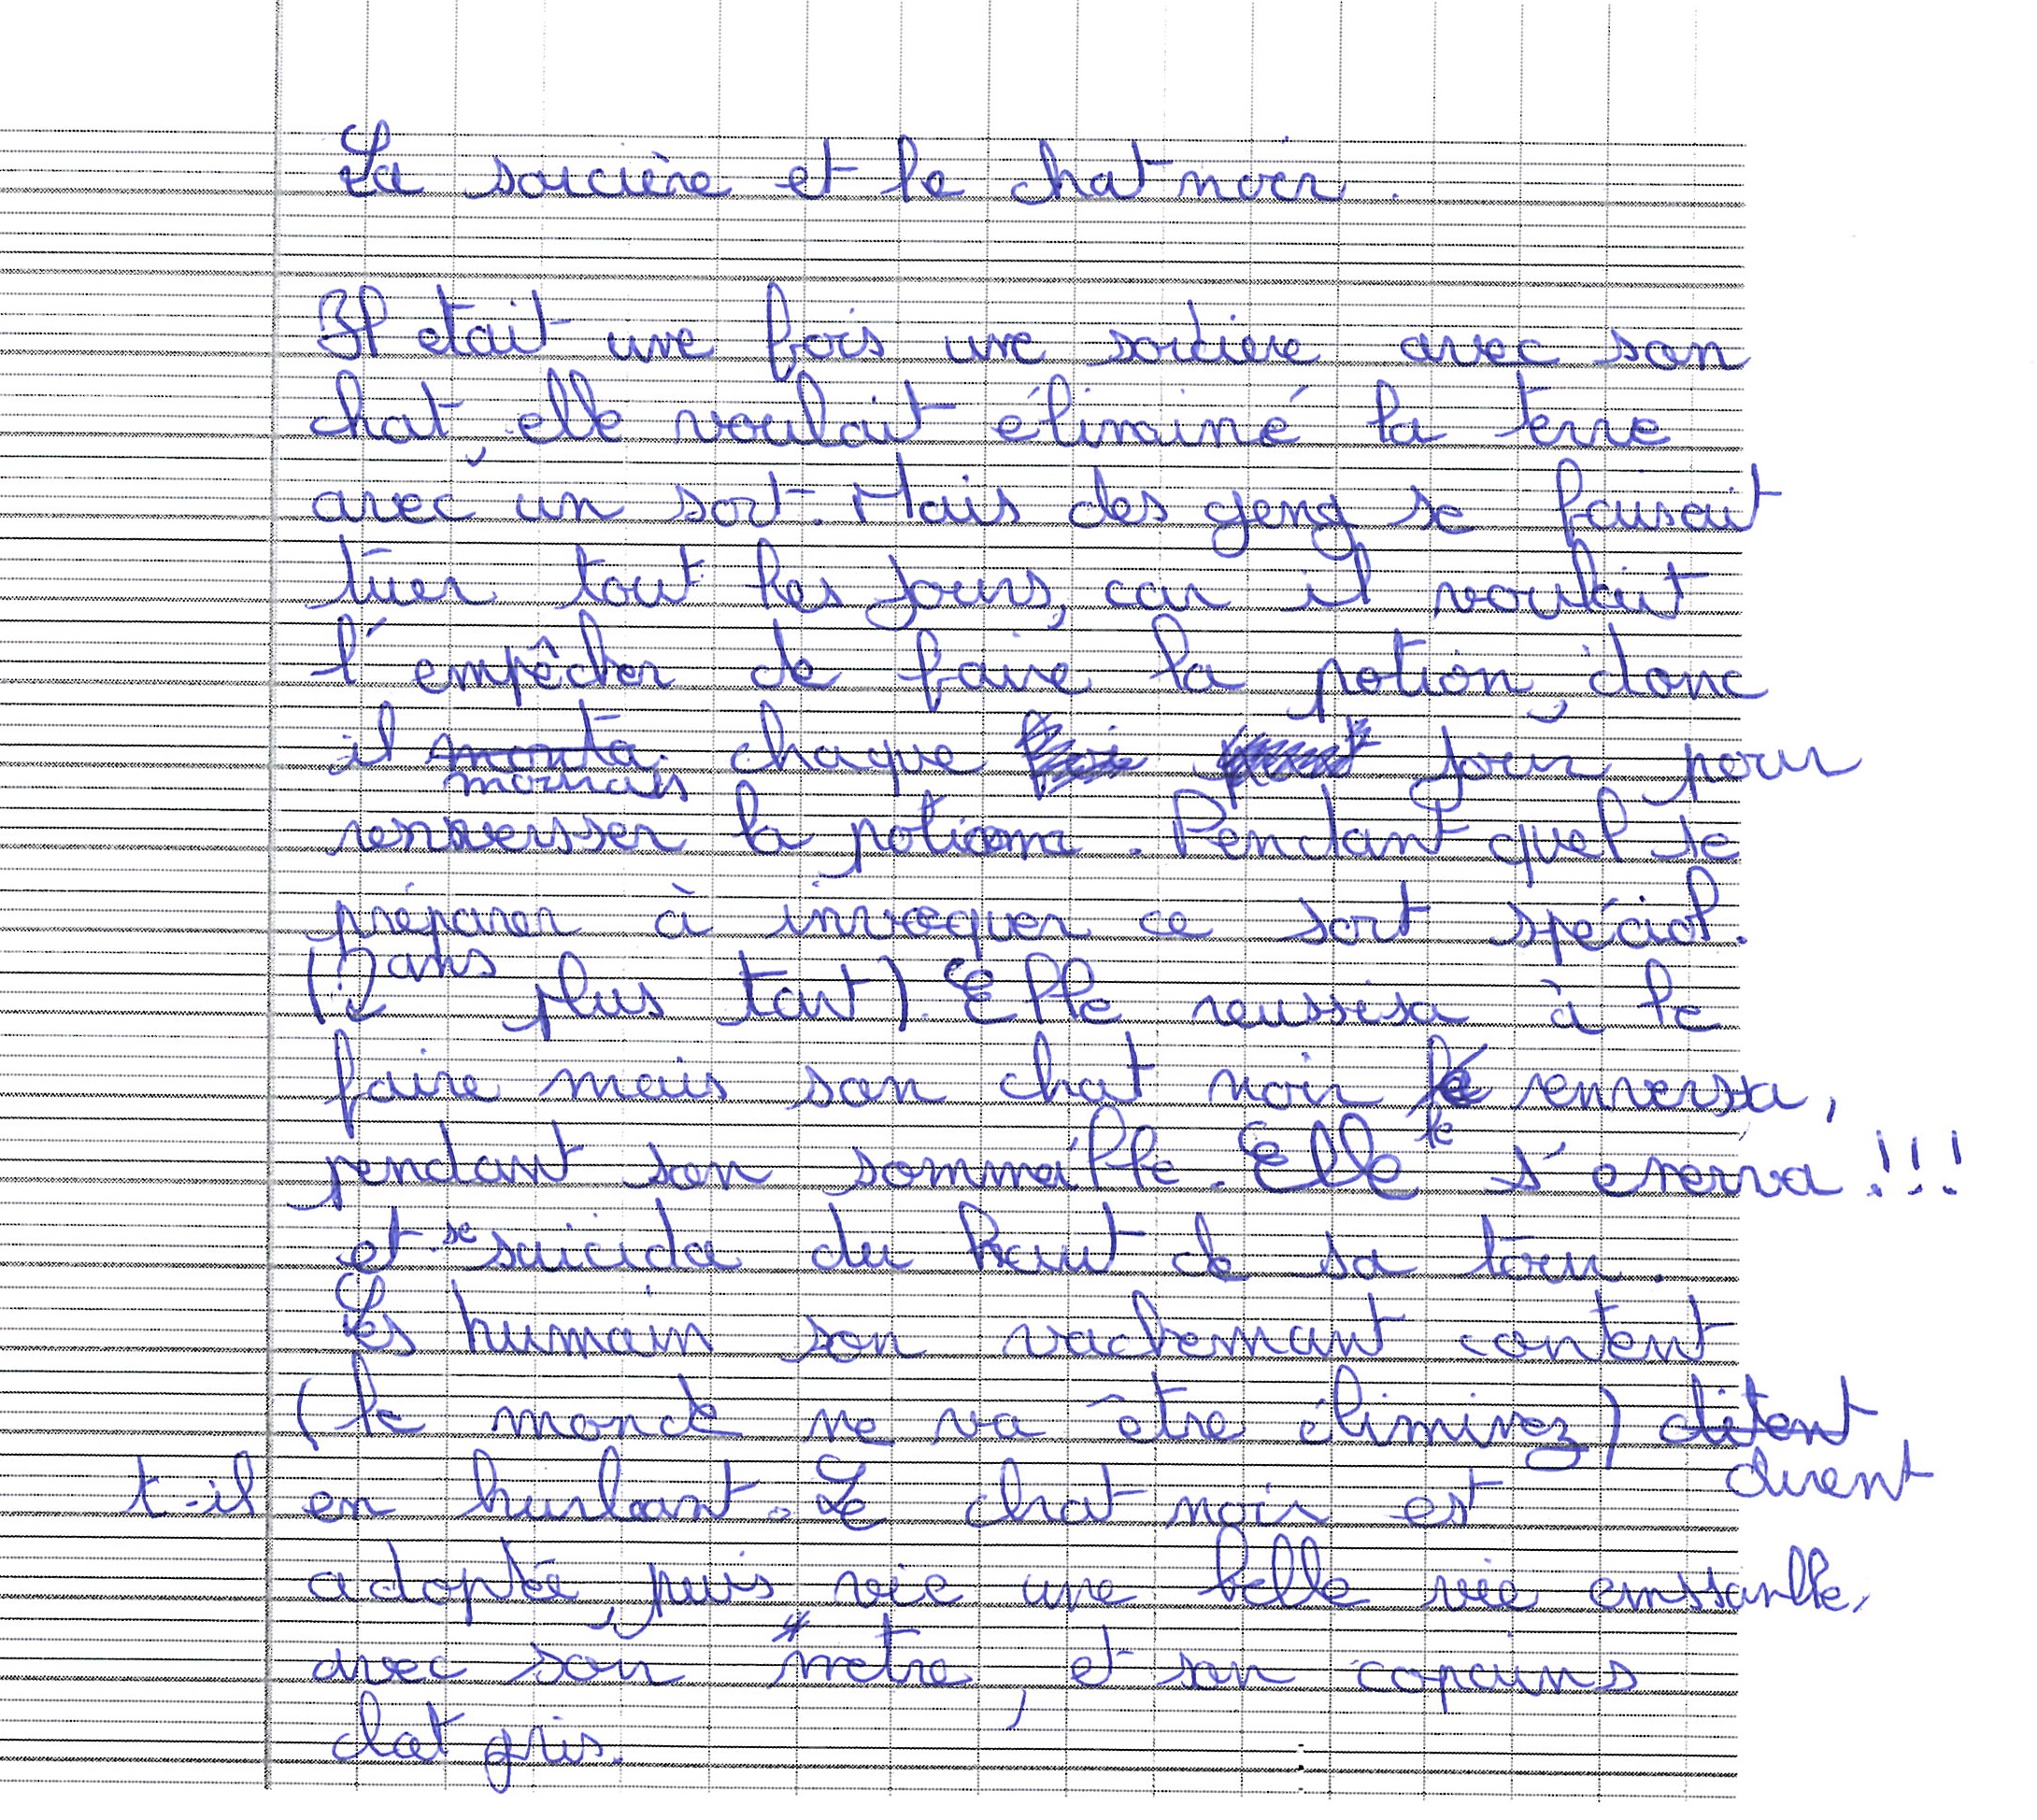 La sorcière et le chat noir.
Il etait une fois une sorcière avec son
chat, elle voulait éliminé la terre
avec un sort. Mais des geng se faisait
tuer tout les jours, car il voulait
l'empêcher de faire la potion, donc
il monta chaque jour pour
mornais
renversser la potion. Pendant quel se
préparer à invoquer ce sort spéciol.
(2 ans plus tart). Elle reussisa à le
faire mais son chat noir le renversa,
pendant son sommeille. Elle s'enerva!!!
et se suicida du haut de sa tour.
Les humain son vachemant content
(le monde ne va être éliminez) ditent
dirent
t-il en hurlant. Le chat noir est
adoptée, puis vie une belle vie emssanble,
avec son metre, et son copains
chat gris.